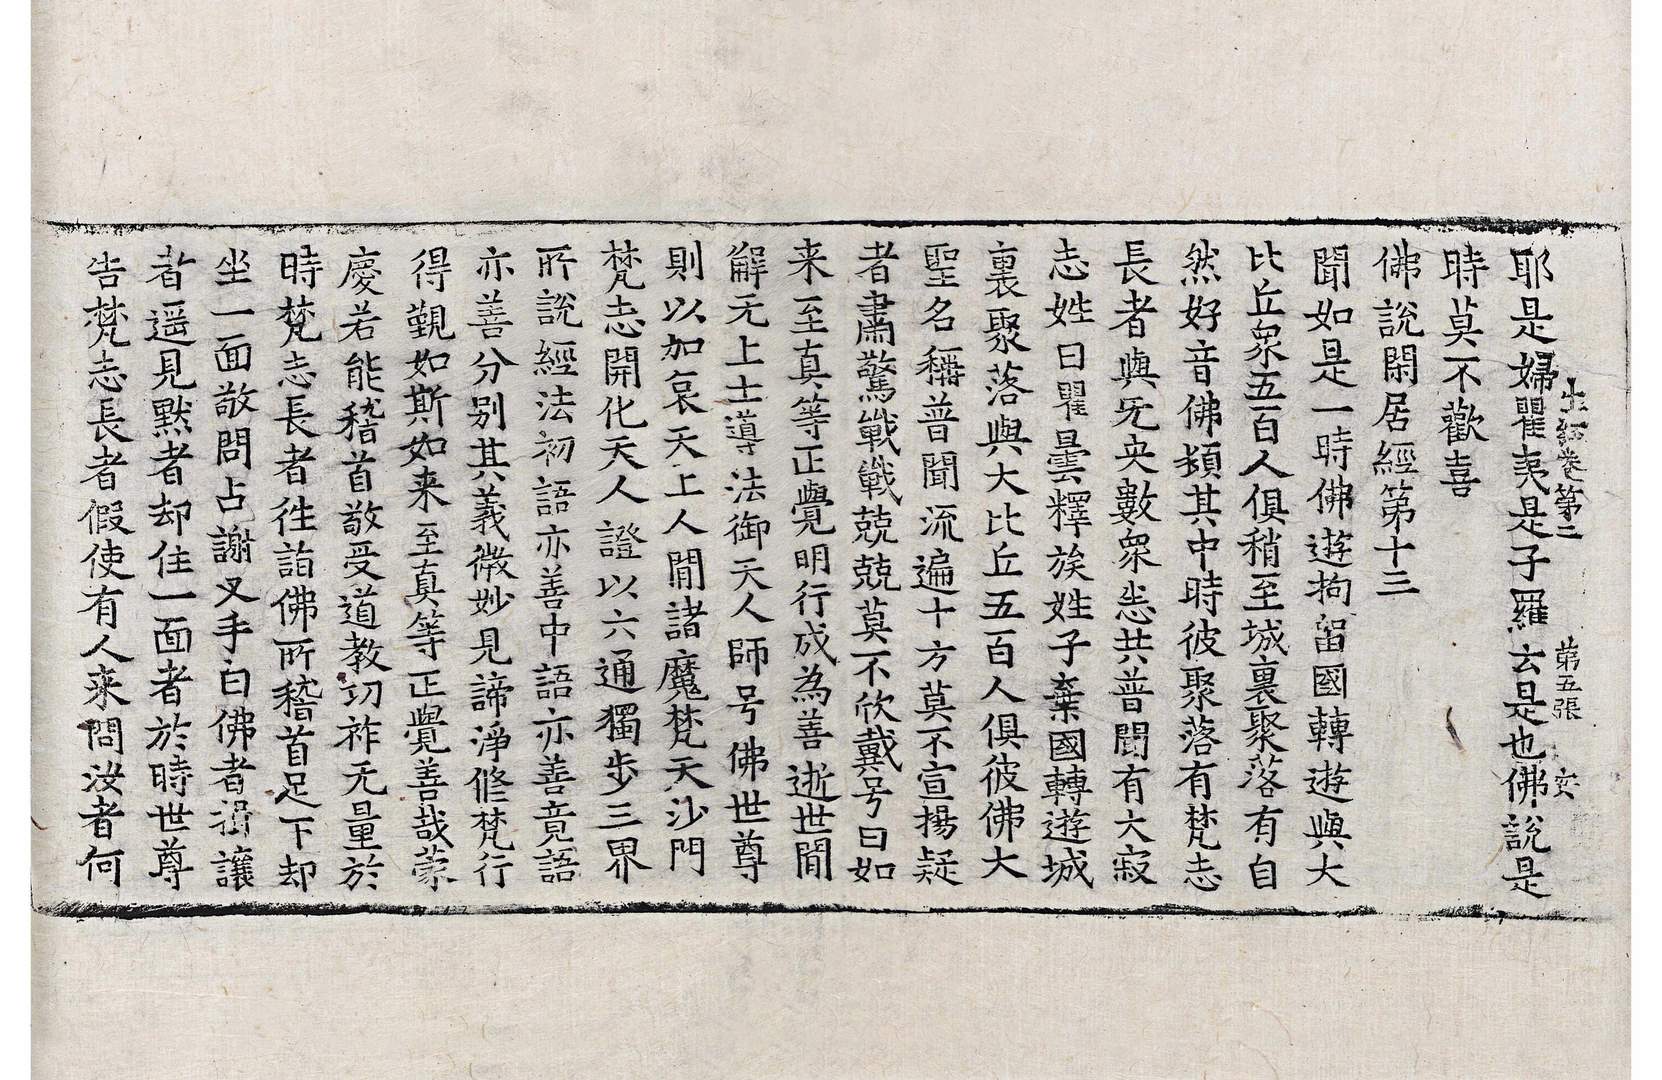 生經卷第二　第五張　安
耶是婦瞿夷是子羅云是也佛說是
時莫不歡喜
佛說閑居經第十三
聞如是一時佛遊拘留國轉遊與大
比丘衆五百人俱稍至城裏聚落有自
然好音佛頞其中時彼聚落有梵志
長者與无央數衆悉共普聞有大寂
志姓曰瞿曇釋族姓子棄國轉遊城
裏聚落與大比丘五百人俱彼佛大
聖名稱普聞流遍十方莫不宣揚疑
者肅驚戰戰兢兢莫不欣戴号曰如
来至真等正覺明行成為善逝世間
解无上士導法御天人師号佛世尊
則以加哀天上人間諸魔梵天沙門
梵志開化天人證以六通獨步三界
所說經法初語亦善中語亦善竟語
亦善分別其義微妙見諦淨修梵行
得覲如斯如来至真等正覺善哉蒙
慶若能稽首敬受道教功祚无量於
時梵志長者往詣佛所稽首足下却
坐一面敬問占謝叉手白佛者揖讓
者遥見默者却住一面者於時世尊
告梵志長者假使有人来問汝者何